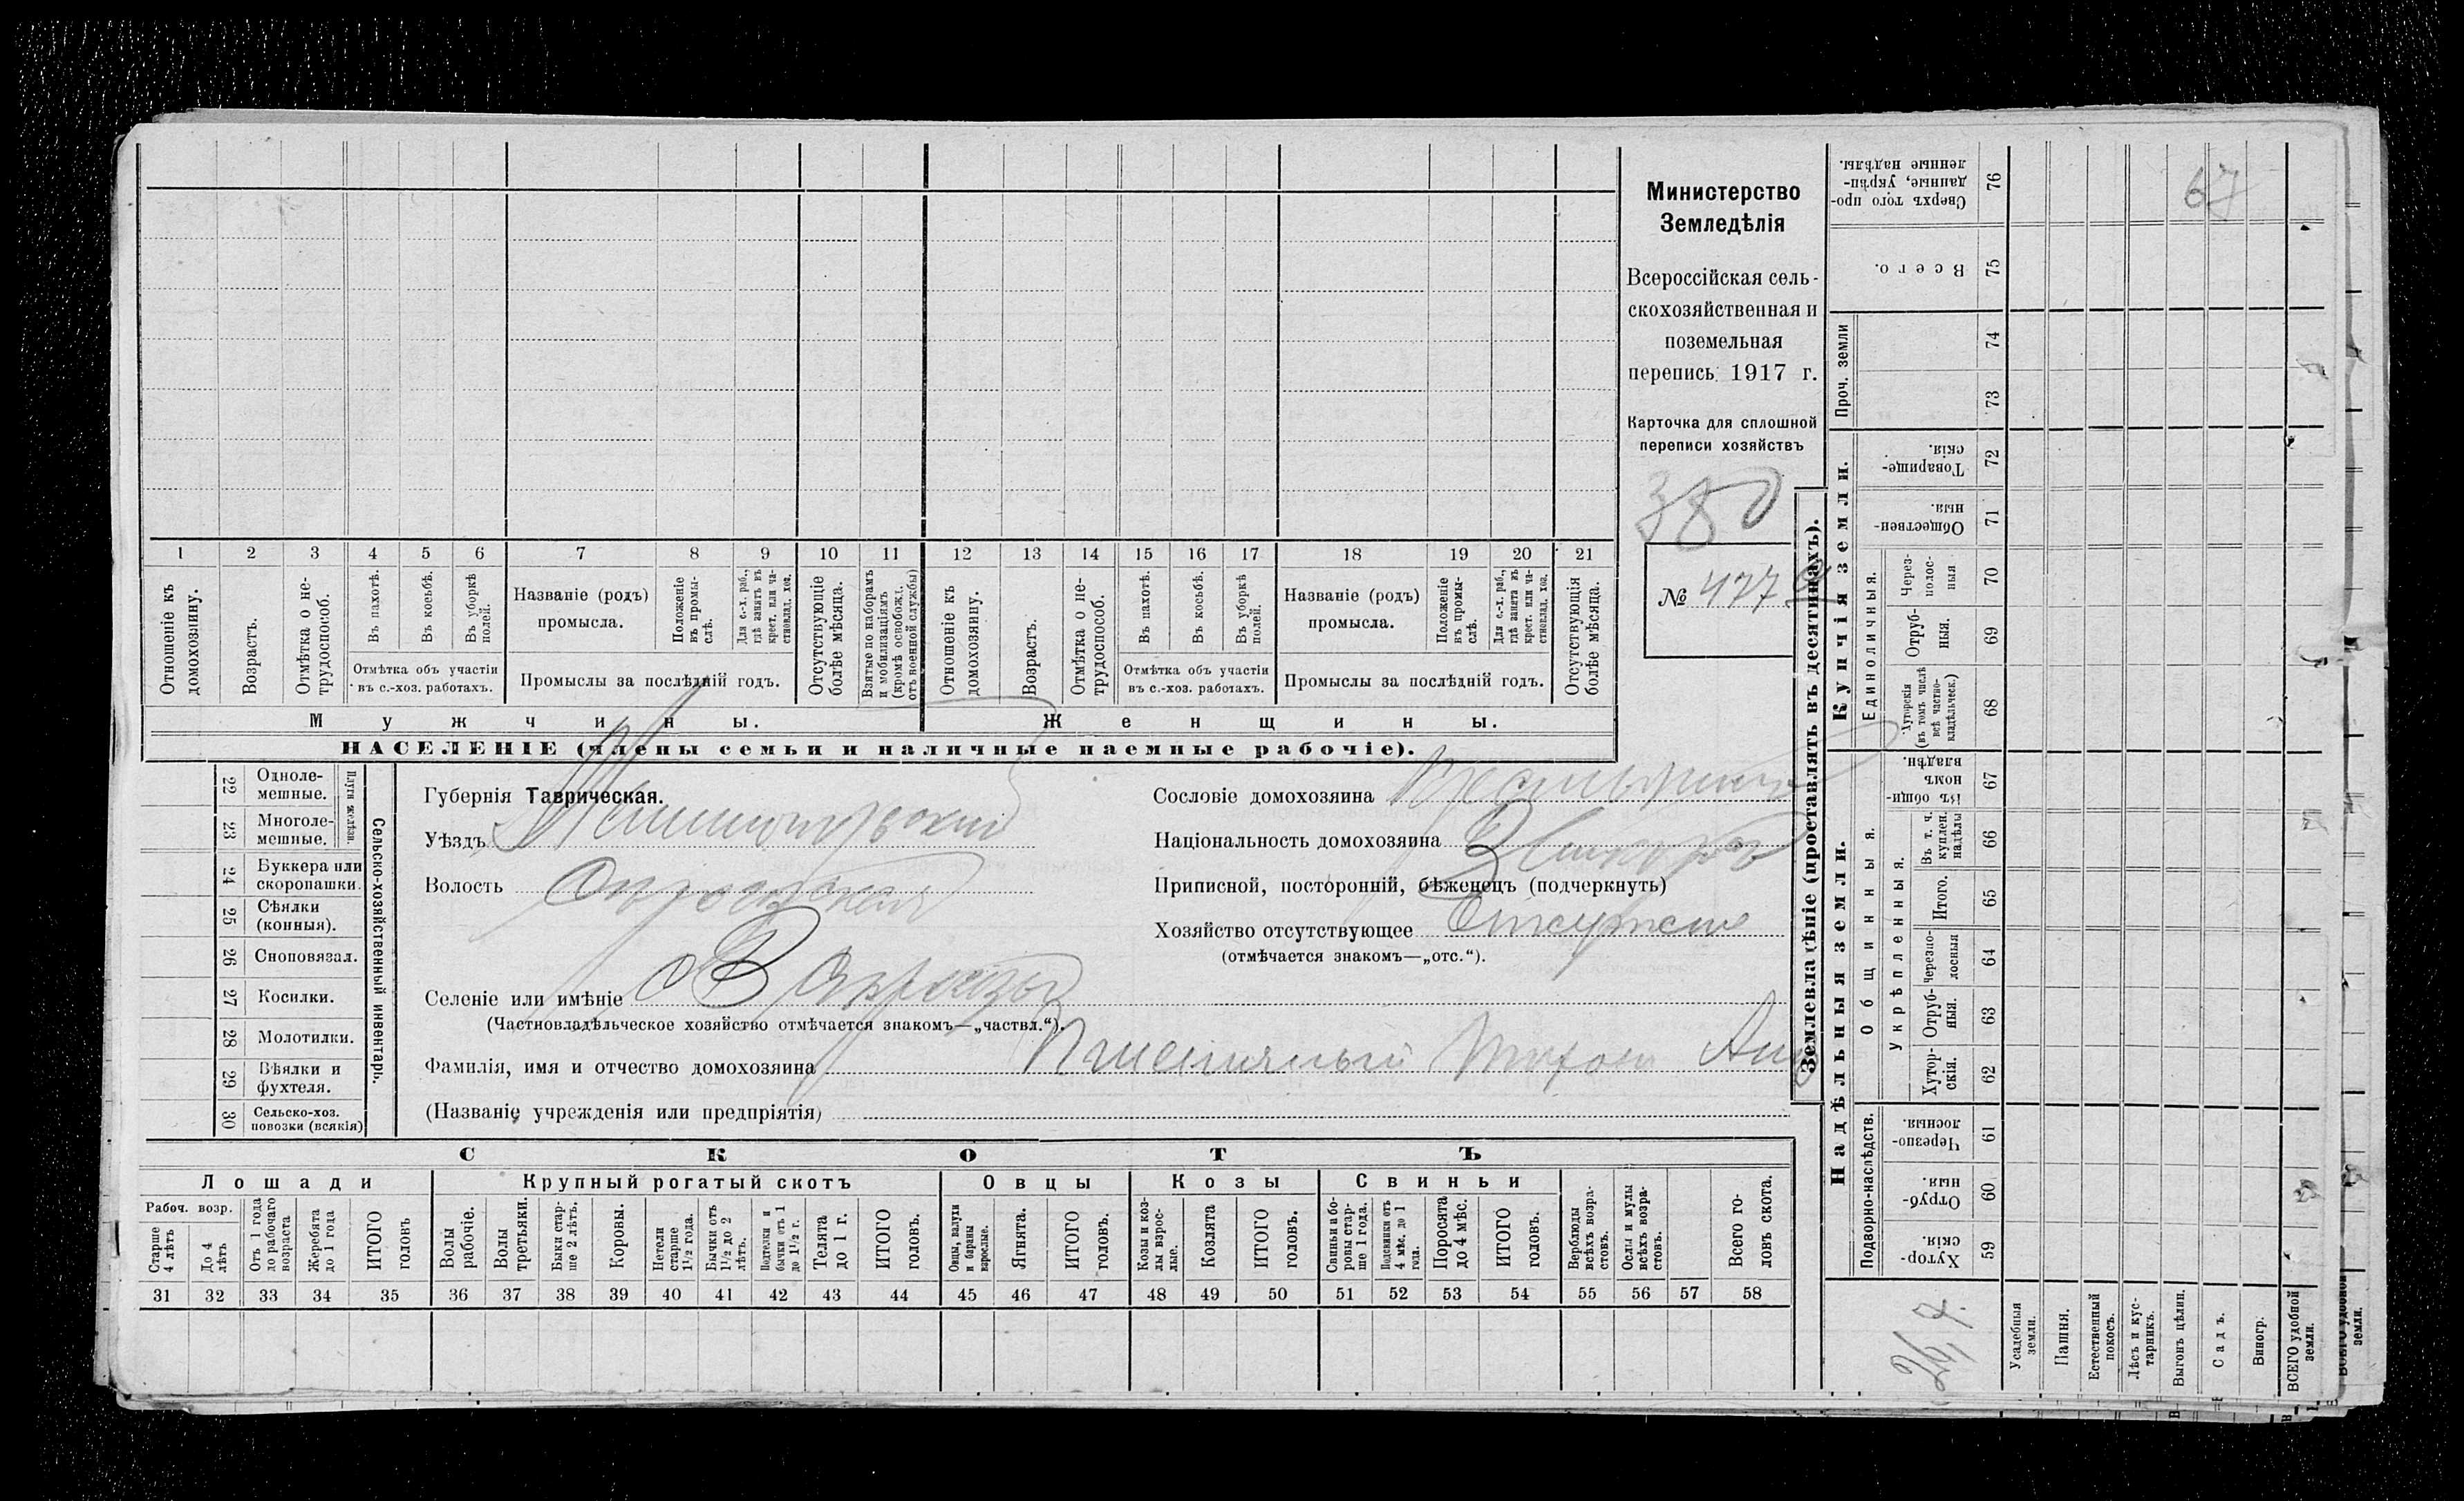 Министерство
Земледѣлія
Всероссійская сель-
скохозяйственная и
поземельная
перепись 1917 г.
Карточка для сплошной
переписи хозяйствъ
380
№ 477
1 2 3 4 5 6 7 8 9 10 11 12 13 14 15 16 17 18 19 20 21
Отношеніе къ домохозяину.
Возрастъ.
Отмѣтка о не-трудоспособ.
Въ пахотѣ.
Въ косьбѣ.
Въ уборкѣ полей.
Отмѣтка объ участіи
въ с.-хоз. работахъ.
Названіе (родъ)
промысла.
Положеніе въ промы-слѣ.
Для с.-х. раб., гдѣ занятъ въ крест. или ча-стновлад. хоз.
Промыслы за послѣдній годъ.
Отсутствующіе болѣе мѣсяца.
Взятые по наборамъ и мобилизаціямъ (кромѣ освобожд. отъ военной службы)
Отношеніе къ домохозяину.
Возрастъ.
Отмѣтка о не-трудоспособ.
Въ пахотѣ.
Въ косьбѣ.
Въ уборкѣ полей.
Отмѣтка объ участіи
въ с.-хоз. работахъ.
Названіе (родъ)
промысла.
Положеніе въ промы-слѣ.
Для с.-х. раб., гдѣ занята въ крест. или ча-стновлад. хоз.
Промыслы за послѣдній годъ.
Отсутствующія болѣе мѣсяца.
Мужчины. Женщины.
НАСЕЛЕНІЕ (члены семьи и наличные наемные рабочіе).
Сельско-хозяйственный инвентарь.
Плуги желѣзн.
22 Одноле-мешные.
23 Многоле-мешные.
24 Буккера или скоропашки.
25 Сѣялки (конныя).
26 Сноповязал.
27 Косилки.
28 Молотилки.
29 Вѣялки и фухтеля.
30 Сельско-хоз. повозки (всякія)
Губернія Таврическая.
Уѣздъ
Волость
Селеніе или имѣніе
(Частновладѣльческое хозяйство отмѣчается знакомъ—„частвл.“).
Фамилія, имя и отчество домохозяина Пшеничный
(Названіе учрежденія или предпріятія)
Сословіе домохозяина
Національность домохозяина
Приписной, посторонній, бѣженецъ (подчеркнуть)
Хозяйство отсутствующее
(отмѣчается знакомъ—„отс.“).
СКОТЪ
Лошади Крупный рогатый скотъ Овцы Козы Свиньи
Рабоч. возр.
Старше 4 лѣтъ
До 4 лѣтъ
Отъ 1 года до рабочаго возраста
Жеребята до 1 года
ИТОГО головъ
Волы рабочіе.
Волы третьяки.
Быки стар-ше 2 лѣтъ.
Коровы.
Нетели старше 1½ года.
Бычки отъ 1½ до 2 лѣтъ.
Подтелки и бычки отъ 1 до 1½ г.
Телята до 1 г.
ИТОГО головъ.
Овцы, валухи и бараны взрослые.
Ягнята.
ИТОГО головъ.
Козы и коз-лы взрос-лые.
Козлята
ИТОГО головъ.
Свиньи и бо-ровы стар-ше 1 года.
Подсвинки отъ 4 мѣс. до 1 года.
Поросята до 4 мѣс.
ИТОГО головъ.
Верблюды всѣхъ возра-стовъ.
Ослы и мулы всѣхъ возра-стовъ.
Всего го-ловъ скота.
31 32 33 34 35 36 37 38 39 40 41 42 43 44 45 46 47 48 49 50 51 52 53 54 55 56 57 58
Землевладѣніе (проставлять въ десятинахъ).
Надѣльныя земли. Купчія земли. Проч. земли
Подворно-наслѣдств.
Общинныя.
Укрѣпленныя.
Единоличныя.
Хутор-скія. 59
Отруб-ныя. 60
Черезпо-лосныя 61
Хутор-скія. 62
Отруб-ныя. 63
Черезпо-лосныя 64
Итого. 65
Въ т. ч. куплен. надѣлы 66
Въ общи-номъ владѣн. 67
Хуторскія (въ томъ числѣ всѣ частно-владѣльческ.) 68
Отруб-ныя. 69
Через-полос-ныя 70
Обществен-ныя. 71
Товарище-скія. 72
73
74
Всего. 75
Сверхъ того про-данные, укрѣп-ленные надѣлы. 76
67
Усадебныя земли.
Пашня.
Естественный покосъ.
Лѣсъ и кус-тарникъ.
Выгонъ цѣлин.
Садъ.
Виногр.
ВСЕГО удобной земли.
ВСЕГО удобной земли.